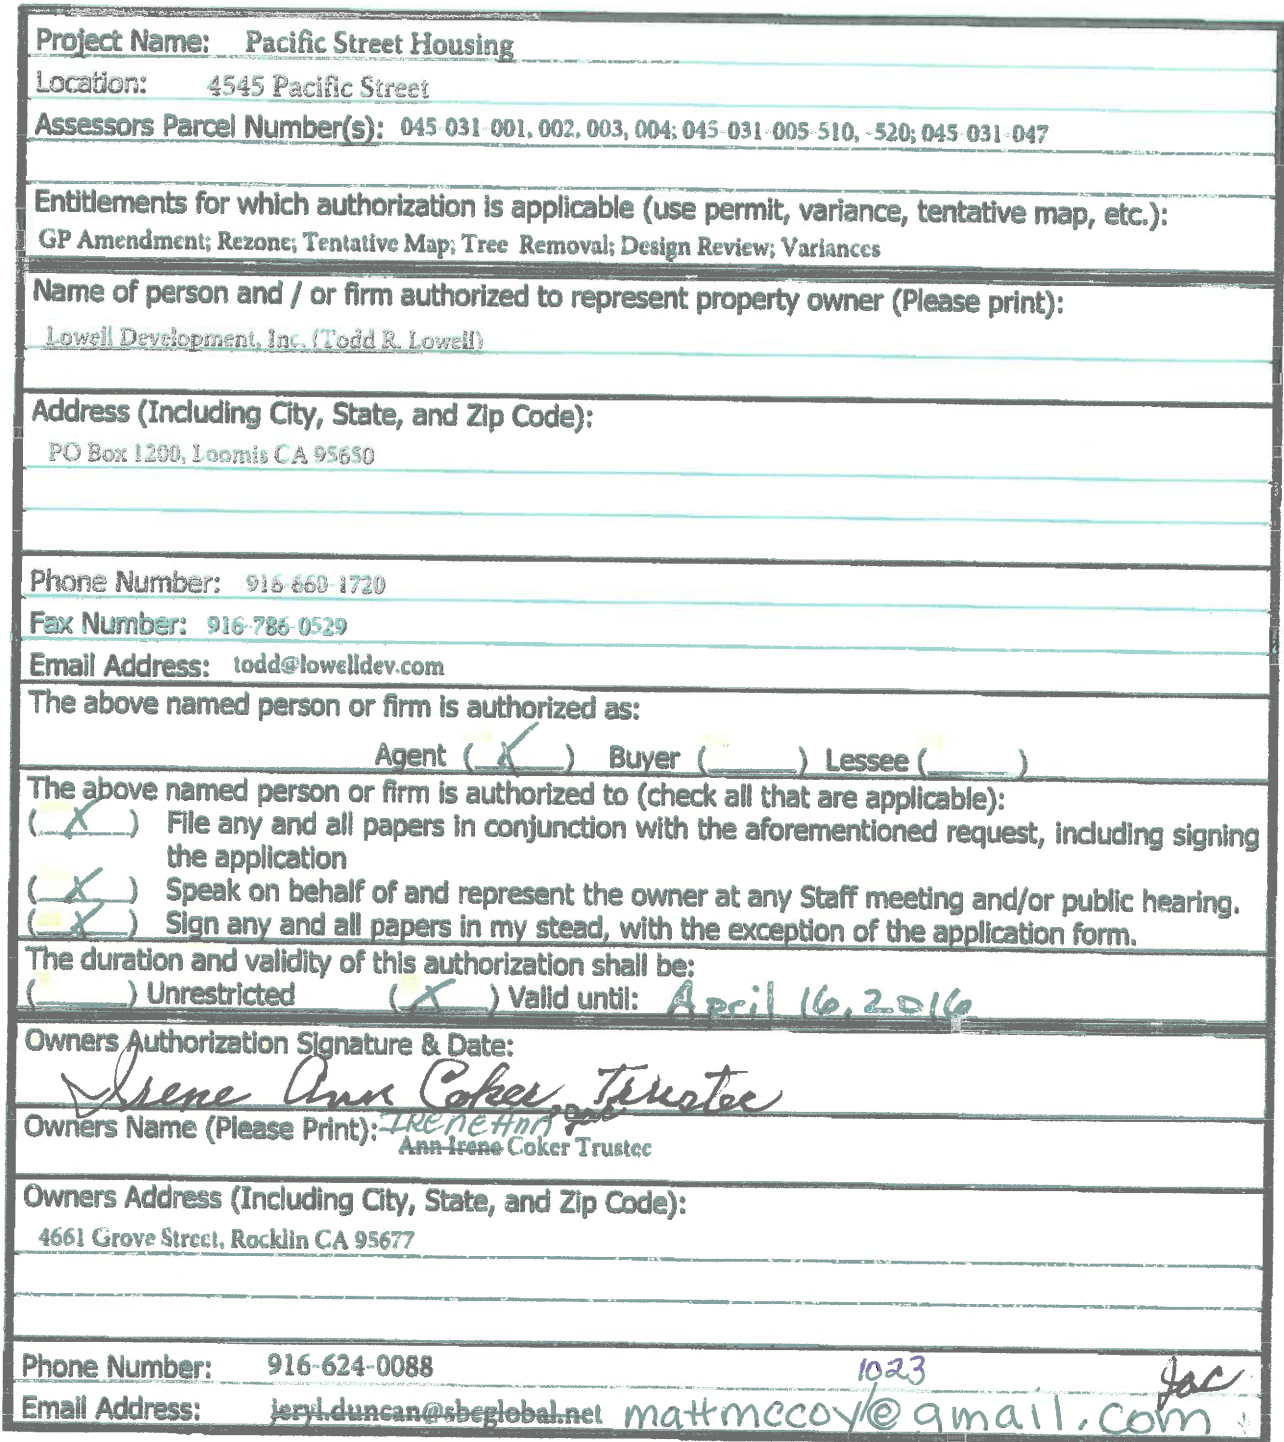 Project Name: Pacific Street Housing
Location: 4545 Pacific Street
Assessors Parcel Number(s): 045-031-001, 002, 003, 004; 045-031-005-510, -520; 045-031-047
Entitlements for which authorization is applicable (use permit, variance, tentative map, etc.):
GP Amendment; Rezone; Tentative Map; Tree Removal; Design Review; Variances
Name of person and / or firm authorized to represent property owner (Please print):
Lowell Development, Inc. (Todd R. Lowell)
Address (Including City, State, and Zip Code):
PO Box 1200, Loomis CA 95650
Phone Number: 916-660-1720
Fax Number: 916-786-0529
Email Address: todd@lowelldev.com
The above named person or firm is authorized as:
Agent ( X ) Buyer (______) Lessee (______)
The above named person or firm is authorized to (check all that are applicable):
( X ) File any and all papers in conjunction with the aforementioned request, including signing
the application
( X ) Speak on behalf of and represent the owner at any Staff meeting and/or public hearing.
( X ) Sign any and all papers in my stead, with the exception of the application form.
The duration and validity of this authorization shall be:
(______) Unrestricted ( X ) Valid until: April 16, 2016
Owners Authorization Signature & Date:
Irene Ann Coker, Trustee
Owners Name (Please Print): IRENE Ann
Ann Irene Coker Trustee
Owners Address (Including City, State, and Zip Code):
4661 Grove Street, Rocklin CA 95677
Phone Number: 916-624-0088 1023
Email Address: jeryl.duncan@sbcglobal.net mattmccoy@gmail.com